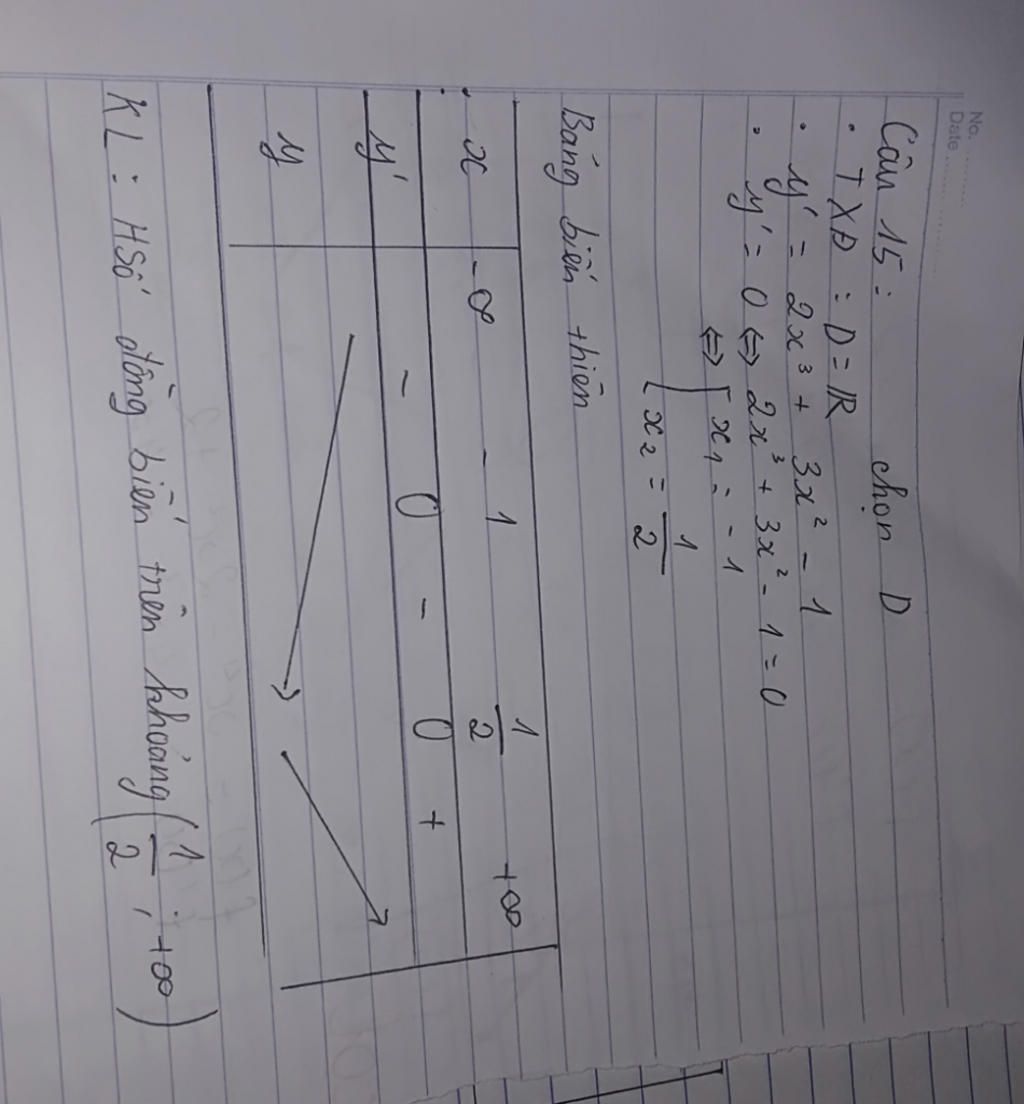 No.
Date
Câu 15: chọn D
• TXĐ: D = ℝ
• y' = 2x³ + 3x² - 1
• y' = 0 ⇔ 2x³ + 3x² - 1 = 0
⇔ [ x₁ = -1
[ x₂ = 1/2
Bảng biến thiên
x -∞ -1 1/2 +∞
y' - 0 - 0 +
y
KL: HSố đồng biến trên khoảng (1/2; +∞)